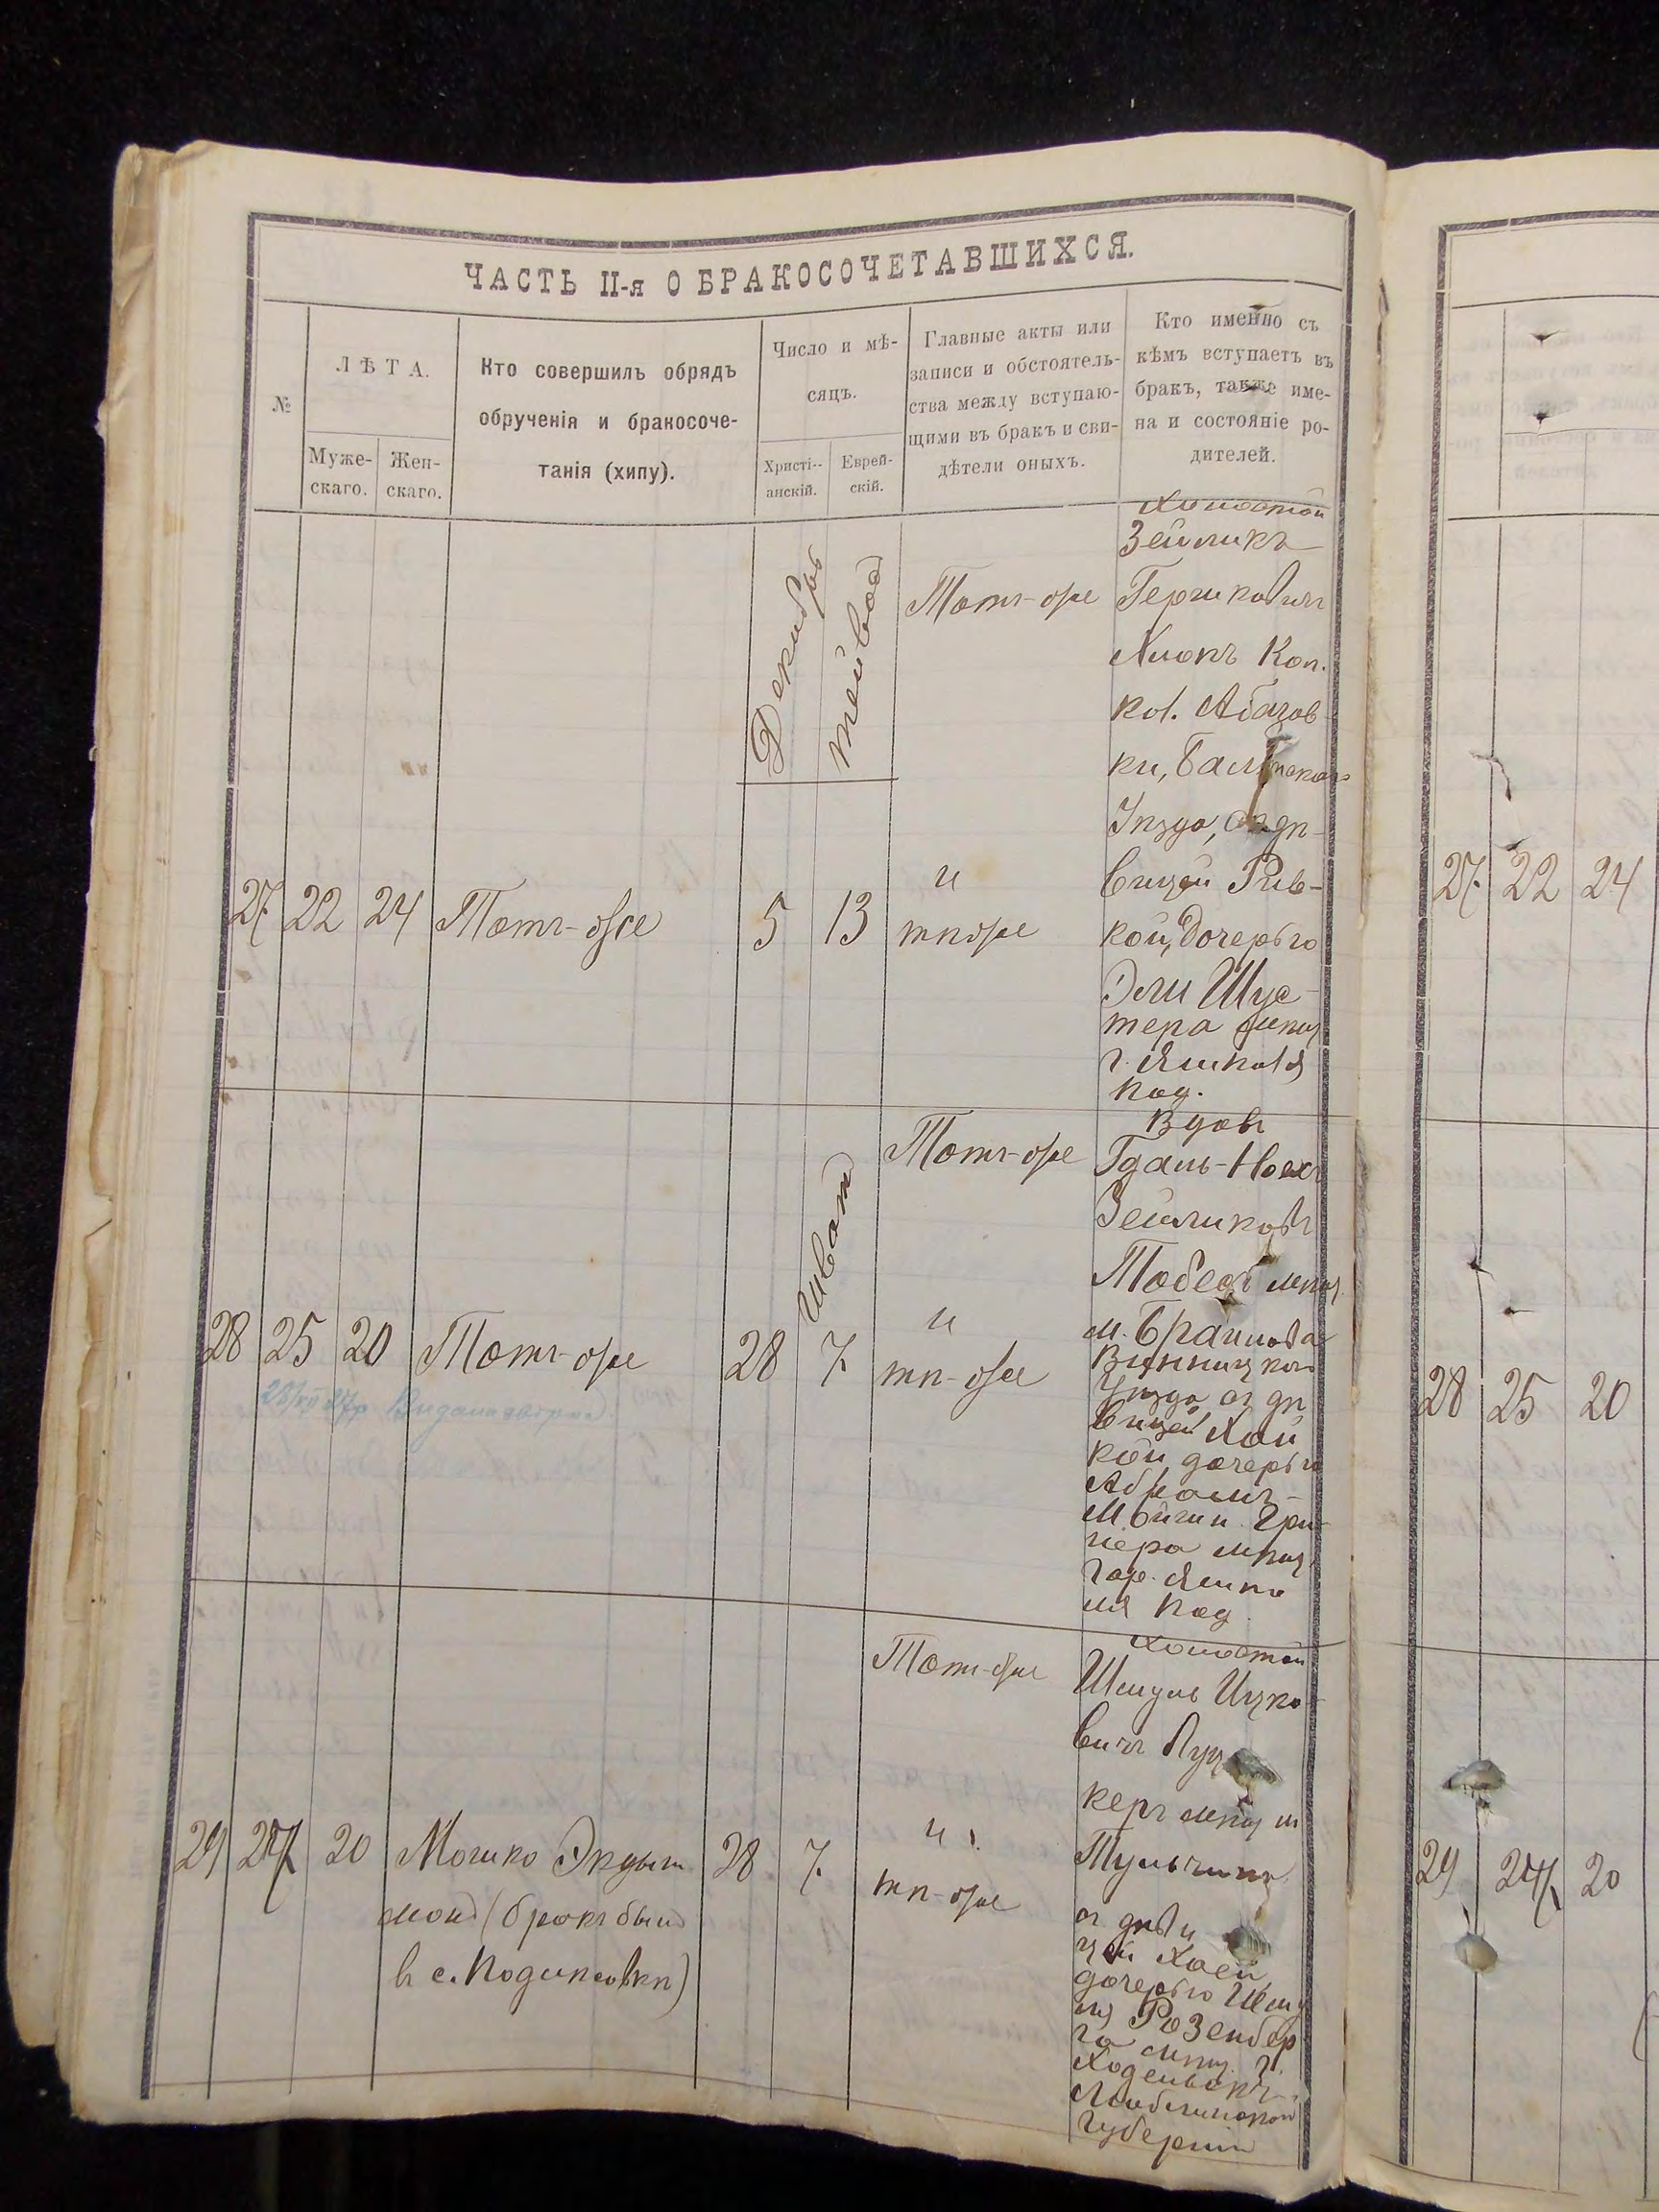 ЧАСТЬ II-я О БРАКОСОЧЕТАВШИХСЯ.
№
ЛѢТА.
Муже-
скаго.
Жен-
скаго.
Кто совершилъ обрядъ
обрученія и бракосоче-
танія (хипу).
Число и мѣ-
сяцъ.
Христі-
анскій.
Еврей-
скій.
Главные акты или
записи и обстоятель-
ства между вступаю-
щими въ бракъ и сви-
дѣтели оныхъ.
Кто именно съ
кѣмъ вступаетъ въ
бракъ, также име-
на и состояніе ро-
дителей.
27
22
24
Тотъ-же
Декабрь
5
Тейвес
13
Тотъ-же
и
тѣже
Холостой
Зейликъ
Гершковичъ
Кол.
Абазов-
ки, Балтскаго
Уѣзда, съ дѣ-
вицей Рив-
кой, дочерью
Эли Шус-
тера мѣщ.
г. Ямполя
Под.
28
25
20
Тотъ-же
28
Шват
7
Тотъ-же
и
тѣ-же
Вдовъ
Гдаль-Ноехъ
Зейликовъ
мѣщ.
м. Браилова
Винницкаго
Уѣзда съ дѣ
вицей Хай
кой дочерью
Абрамъ-
мѣщ.
гор. Ямпо
ля Под.
29
27
20
Мошко
(бракъ былъ
в с. )
28
7
Тотъ-же
и
тѣ-же
Холостой
Шмуль Ицко-
вичъ Луц
керъ мѣщ м
Тульчина
съ дѣви
цей Хаей,
дочерью Шму
ля Розенбер
га мѣщ. г.
Люблинской
губерніи
27
22
24
28
25
20
29
27
20